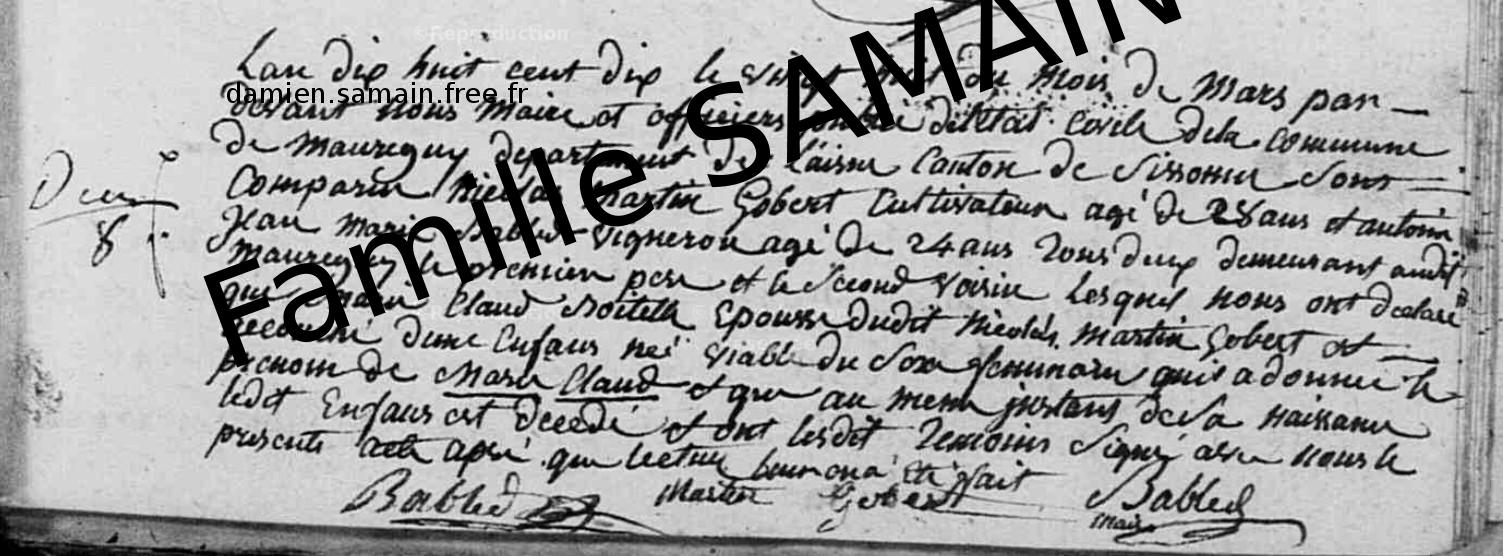 ©Reproduction
Lan dix huit cent dix le vingt huit du mois de Mars par
damien.samain.free.fr
devant nous Maire et officiers public détat Civile dela Commune
de Mauregny departement de Laisne Canton de Sissonne Sont
Comparus Nicolas Martin Gobert Cultivateur agé de 28 ans et antoine
Jean Marie Babled Vigneron agé de 24 ans Tous deux demeurant audit
Mauregny le premier pere et le Second Voisin Lesquel nous ont declaré
que Marie Claud Boitelle Epousse dudit Nicolas Martin Gobert est
accouché dune Enfans neé viable du Sexe femminin quil a donné le
prenom de Marie Claud et que au meme instant de Sa naissance
ledit Enfans est decedé et ont lesdit Temoins Signé avec nous le
presente acte apré que lecture leur en a été fait
Babled Martin Gobert Babled
maire
Deces
8
Famille SAMAIN